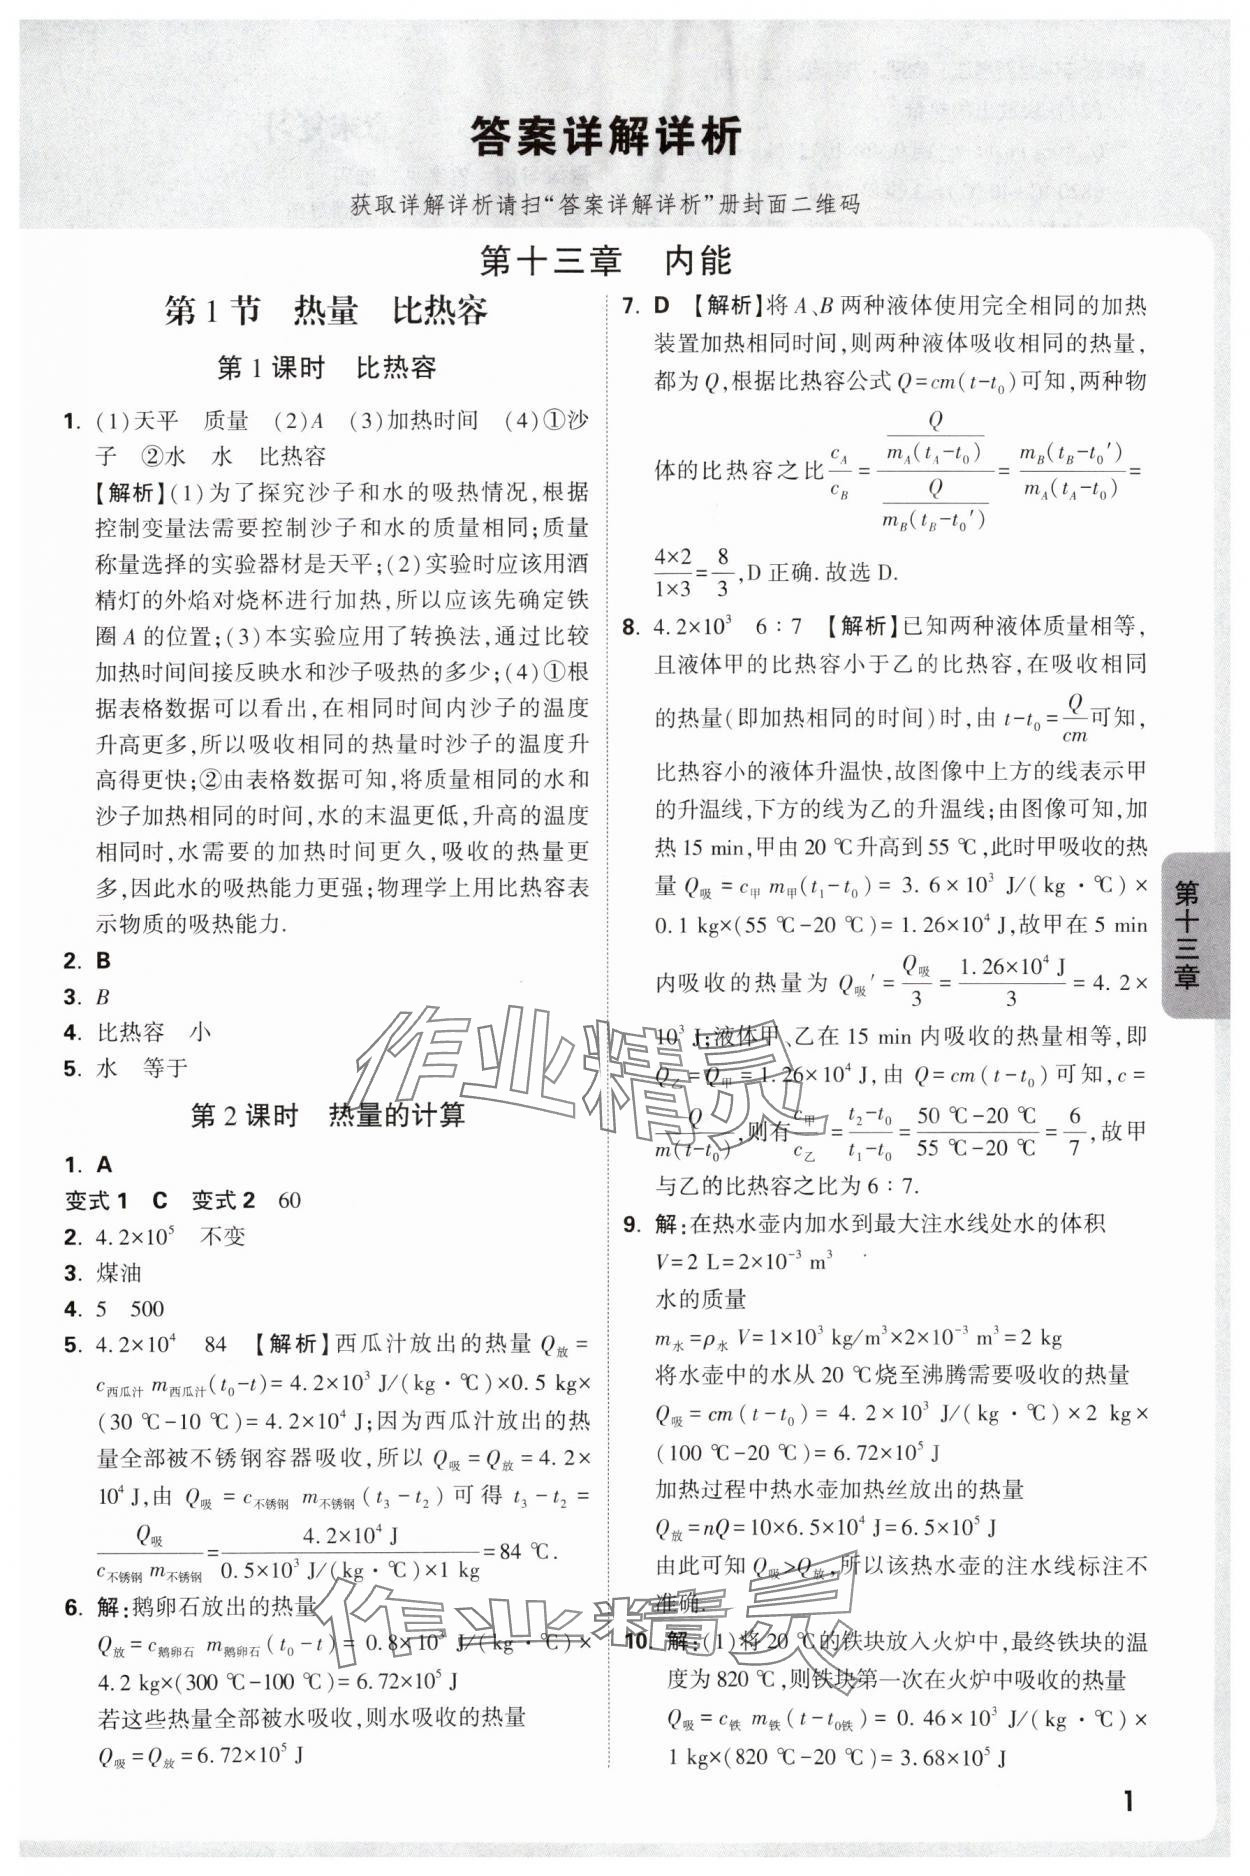 答案详解详析
获取详解详析请扫“答案详解详析”册封面二维码
第十三章 内能
第1节 热量 比热容
第1课时 比热容
1. (1)天平 质量 (2)A (3)加热时间 (4)①沙
子 ②水 水 比热容
【解析】(1)为了探究沙子和水的吸热情况,根据
控制变量法需要控制沙子和水的质量相同;质量
称量选择的实验器材是天平;(2)实验时应该用酒
精灯的外焰对烧杯进行加热,所以应该先确定铁
圈A的位置;(3)本实验应用了转换法,通过比较
加热时间间接反映水和沙子吸热的多少;(4)①根
据表格数据可以看出,在相同时间内沙子的温度
升高更多,所以吸收相同的热量时沙子的温度升
高得更快;②由表格数据可知,将质量相同的水和
沙子加热相同的时间,水的末温更低,升高的温度
相同时,水需要的加热时间更久,吸收的热量更
多,因此水的吸热能力更强;物理学上用比热容表
示物质的吸热能力.
2. B
3. B
4. 比热容 小
5. 水 等于
第2课时 热量的计算
1. A
变式1 C 变式2 60
2. 4.2×10⁵ 不变
3. 煤油
4. 5 500
5. 4.2×10⁴ 84 【解析】西瓜汁放出的热量 Q放=
c西瓜汁 m西瓜汁(t₀-t)=4.2×10³ J/(kg·℃)×0.5 kg×
(30 ℃-10 ℃)=4.2×10⁴ J;因为西瓜汁放出的热
量全部被不锈钢容器吸收,所以 Q吸=Q放=4.2×
10⁴ J,由 Q吸=c不锈钢 m不锈钢(t₃-t₂)可得 t₃-t₂=
Q吸/(c不锈钢 m不锈钢)=4.2×10⁴ J/(0.5×10³ J/(kg·℃)×1 kg)=84 ℃.
6. 解:鹅卵石放出的热量
Q放=c鹅卵石 m鹅卵石(t₀-t)=0.8×10³ J/(kg·℃)×
4.2 kg×(300 ℃-100 ℃)=6.72×10⁵ J
若这些热量全部被水吸收,则水吸收的热量
Q吸=Q放=6.72×10⁵ J
7. D 【解析】将A、B两种液体使用完全相同的加热
装置加热相同时间,则两种液体吸收相同的热量,
都为Q,根据比热容公式Q=cm(t-t₀)可知,两种物
体的比热容之比 cA/cB=(Q/(mA(tA-t₀)))/(Q/(mB(tB-t₀′)))=mB(tB-t₀′)/(mA(tA-t₀))=
(4×2)/(1×3)=8/3,D正确.故选D.
8. 4.2×10³ 6∶7 【解析】已知两种液体质量相等,
且液体甲的比热容小于乙的比热容,在吸收相同
的热量(即加热相同的时间)时,由 t-t₀=Q/cm可知,
比热容小的液体升温快,故图像中上方的线表示甲
的升温线,下方的线为乙的升温线;由图像可知,加
热15 min,甲由20 ℃升高到55 ℃,此时甲吸收的热
量 Q吸=c甲 m甲(t₁-t₀)=3.6×10³ J/(kg·℃)×
0.1 kg×(55 ℃-20 ℃)=1.26×10⁴ J,故甲在5 min
内吸收的热量为 Q吸′=Q吸/3=1.26×10⁴ J/3=4.2×
10³ J;液体甲、乙在15 min内吸收的热量相等,即
Q乙=Q甲=1.26×10⁴ J,由 Q=cm(t-t₀)可知,c=
Q/(m(t-t₀)),则有 c甲/c乙=(t₂-t₀)/(t₁-t₀)=(50 ℃-20 ℃)/(55 ℃-20 ℃)=6/7,故甲
与乙的比热容之比为6∶7.
9. 解:在热水壶内加水到最大注水线处水的体积
V=2 L=2×10⁻³ m³
水的质量
m水=ρ水 V=1×10³ kg/m³×2×10⁻³ m³=2 kg
将水壶中的水从20 ℃烧至沸腾需要吸收的热量
Q吸=cm(t-t₀)=4.2×10³ J/(kg·℃)×2 kg×
(100 ℃-20 ℃)=6.72×10⁵ J
加热过程中热水壶加热丝放出的热量
Q放=nQ=10×6.5×10⁴ J=6.5×10⁵ J
由此可知 Q吸>Q放,所以该热水壶的注水线标注不
准确.
10. 解:(1)将20 ℃的铁块放入火炉中,最终铁块的温
度为820 ℃,则铁块第一次在火炉中吸收的热量
Q吸=c铁 m铁(t-t₀铁)=0.46×10³ J/(kg·℃)×
1 kg×(820 ℃-20 ℃)=3.68×10⁵ J
第十三章
1
作业精灵
作业精灵